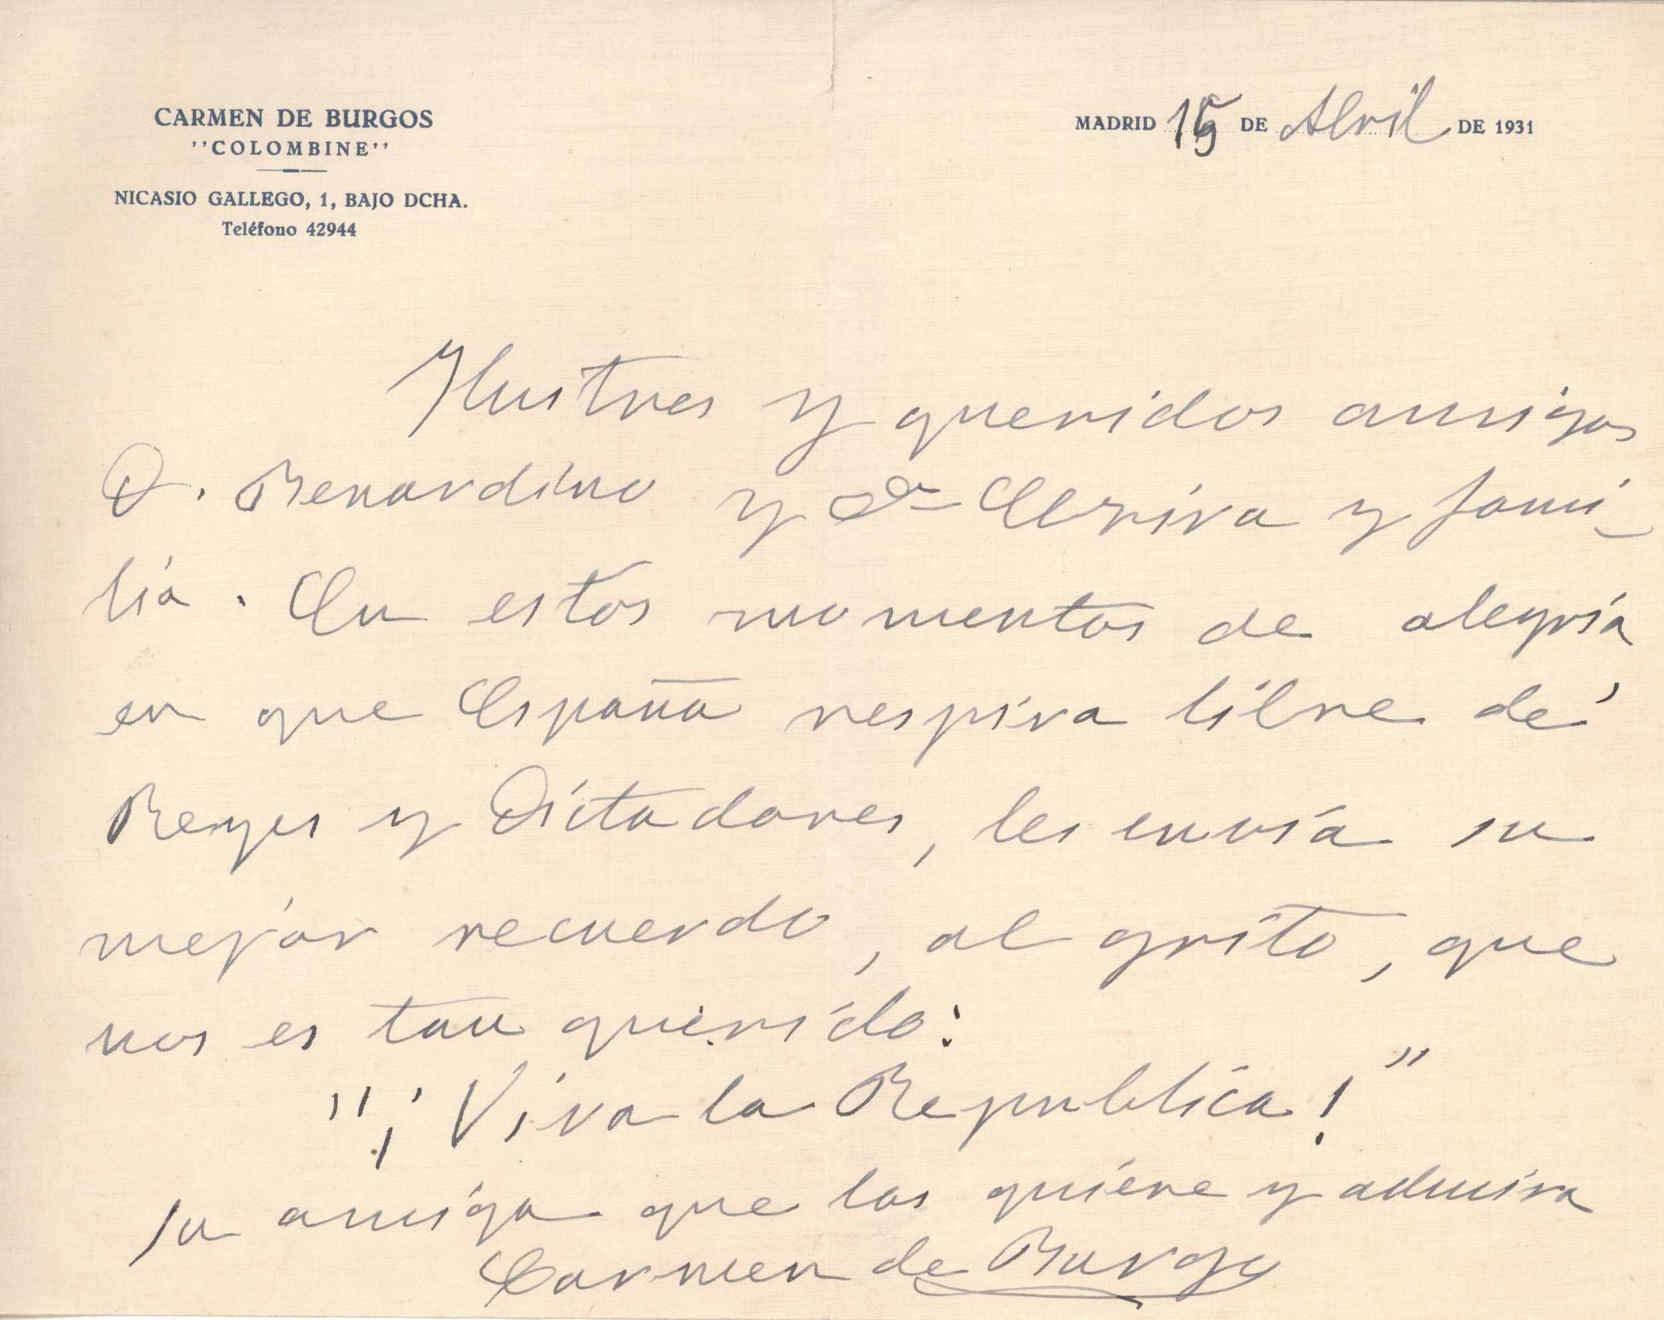 CARMEN DE BURGOS
''COLOMBINE''
NICASIO GALLEGO, 1, BAJO DCHA.
Teléfono 42944
MADRID 15 DE Abril DE 1931
Ilustres y queridos amigos
D. Benardino y Dª Elzira y fami-
lia. En estos momentos de alegría
en que España respira libre de
Reyes y Dictadores, les envía su
mejor recuerdo, al grito, que
nos es tan querido:
"¡Viva la Republica!"
su amiga que los quiere y admira
Carmen de Burgos